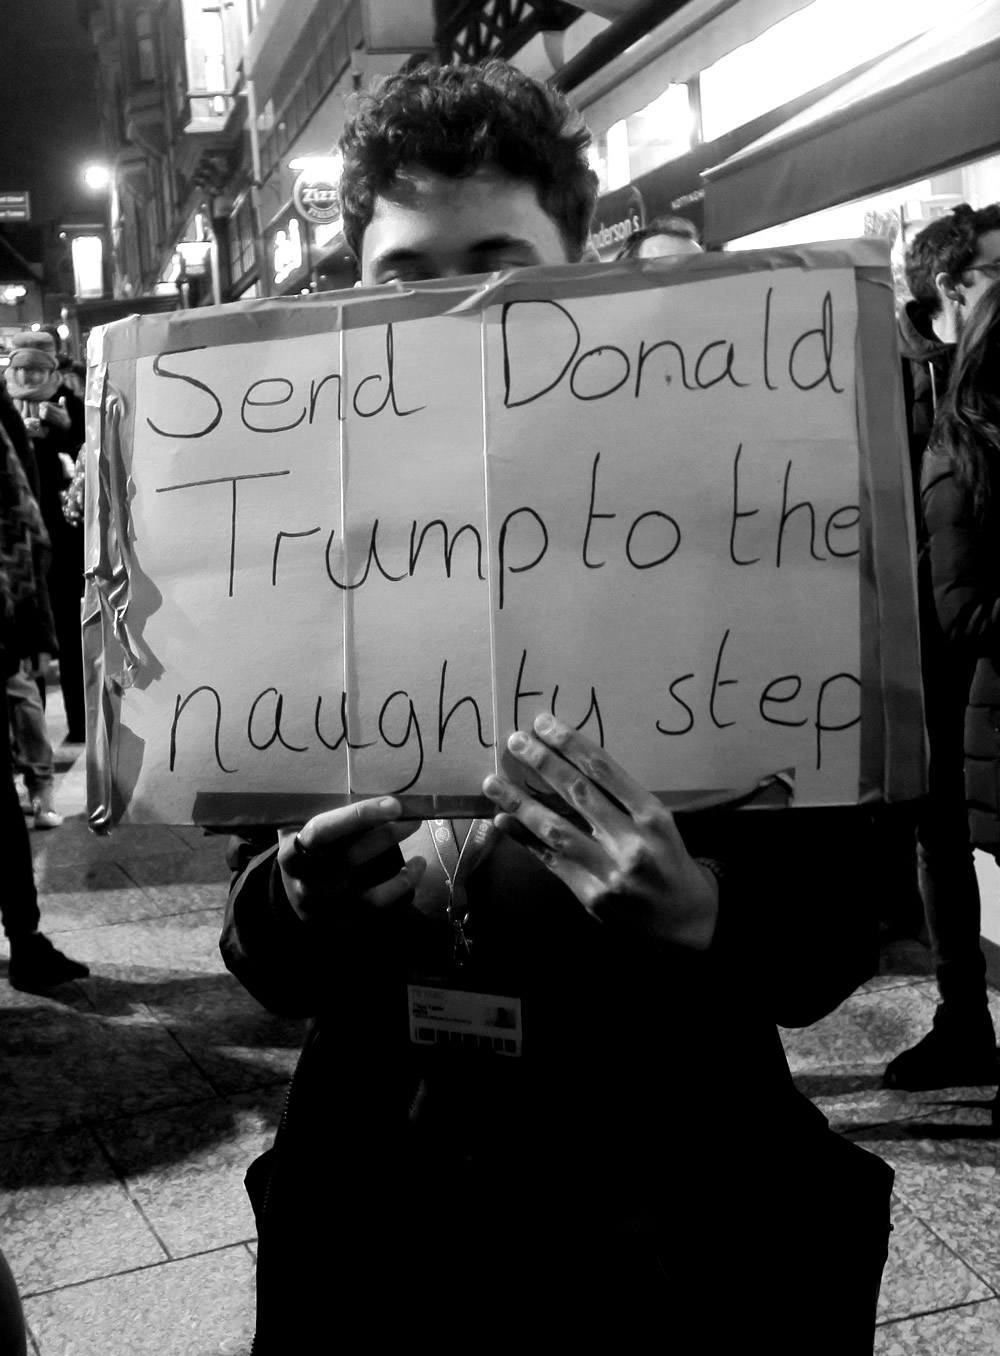 Send Donald
Trump to the
naughty step
Zizzi